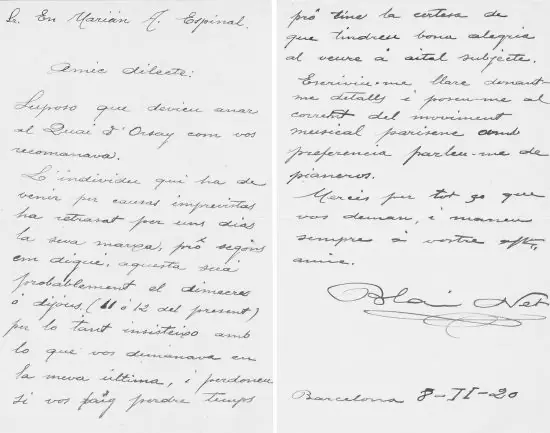 Sr. En Marián A. Espinal.
Amic dilecte:
Suposo que devieu anar
al Quai d'Orsay com vos
recomanava.
L'individeu qui ha de
venir per causas imprevistas
ha retrasat per uns dias
la seva marxa, prô segóns
em digué, aquesta será
probablement el dimecres
ó dijóus. (11 ó 12 del present)
per lo tant insisteixo amb
lo que vos demanava en
la meva última, i perdoneu
si vos faig perdre temps
prô tinc la certesa de
que tindreu bona alegria
al veure á aital subjecte.
Escriviu-me llarc donant-
me detalls i poseu-me al
corrent del moviment
musical parisenc amb
preferencia parleu-me de
pianeros.
Mercés per tot ço que
vos deman, i maneu
sempre á vostre
amic.
Blai Net
Barcelona 8-II-20